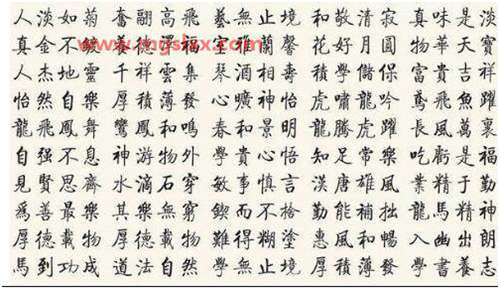 人淡如菊 奮翮高飛 藝無止境 和敬清寂 真味是淡
真金不鍍 養德澤福 室雅蘭馨 花好月圓 物華天寶
www.mgslsx.com
人杰地靈 千祥雲集 琴酒相壽 積學儲保 富貴吉祥
怡然自樂 厚積薄發 心曠神怡 虎嘯龍吟 鳶飛魚躍
龍飛鳳舞 鸞鳳和鳴 春和景明 龍騰虎躍 長風萬裏
自强不息 神游物外 學貴心悟 知足常樂 吃虧是福
見賢思齊 水滴石穿 敏事慎言 漢唐雄風 業精于勤
爲善最樂 其樂無窮 鍥而不捨 勤能補拙 龍馬精神
厚德載物 厚德載物 難得糊塗 惠風和暢 入幽出朗
馬到功成 道法自然 學無止境 厚積薄發 學書養志